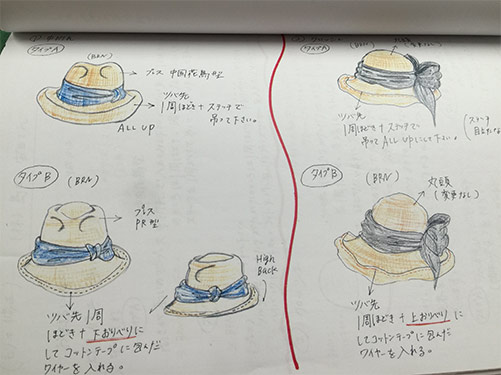 タイプA
(BRN)
プレス 中国花馬型
ツバ先
1周ほどき+ステッチで
吊って下さい。
ALL UP
タイプB
(BRN)
プレス
PR型
ツバ先 1周
ほどき+下おりべりに
してコットンテープに包んだ
ワイヤーを入れる。
High
Back
タイプA
(BRN)
ツバ先
1周ほどき+ステッチで
吊って ALL UPにして下さい。
タイプB
(BRN)
丸頭
(変更なし)
ツバ先
1周ほどき+上おりべりに
してコットンテープに包んだ
ワイヤーを入れる。